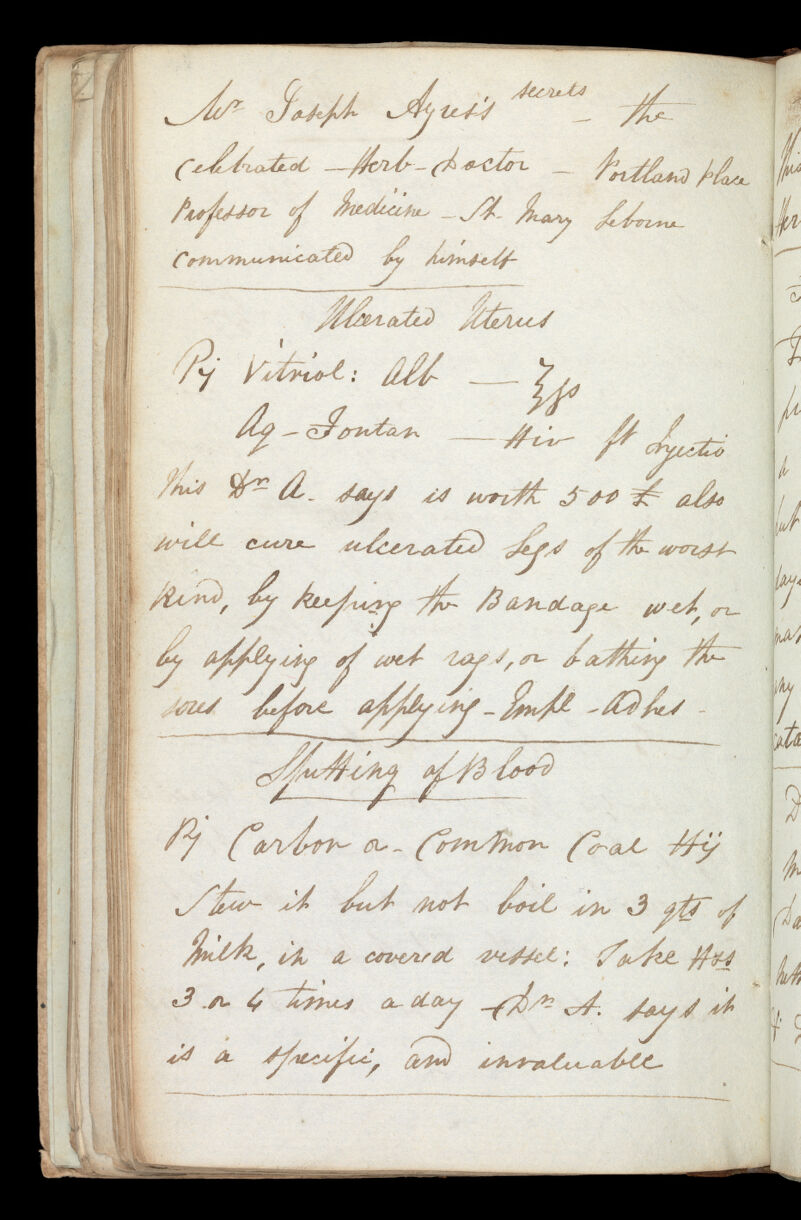 Mr Joseph Ayres's secrets – the
Celebrated – Herb – Doctor – Portland place
Professor of Medicine – St. Mary Leborne
Communicated by himself
Ulcerated Uterus
Rj Vitriol: Alb — ℥ss
Aq – Fontan — ℔iv ft Injectio
This Dr A. says is worth 500 £ also
will cure ulcerated Legs of the worst
kind, by keeping the Bandage wet, or
by applying of wet rags, or bathing the
sores before applying – Empl – Adhes –
Spitting of Blood
Rj Carbon or – Common Coal ℔ij
Stew it but not boil in 3 qts of
Milk, in a covered vessel: Take ℔ss
3 or 4 times a day – Dr A. says it
is a specific, and invaluable